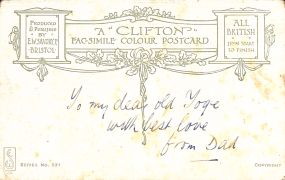 PRODUCED
& PUBLISHED
BY
E.W. SAVORY LD
BRISTOL
A "CLIFTON"
FAC-SIMILE COLOUR POSTCARD
ALL
BRITISH
FROM START
TO FINISH
To my dear old Toge
with best love
from Dad
SERIES No. 531
COPYRIGHT